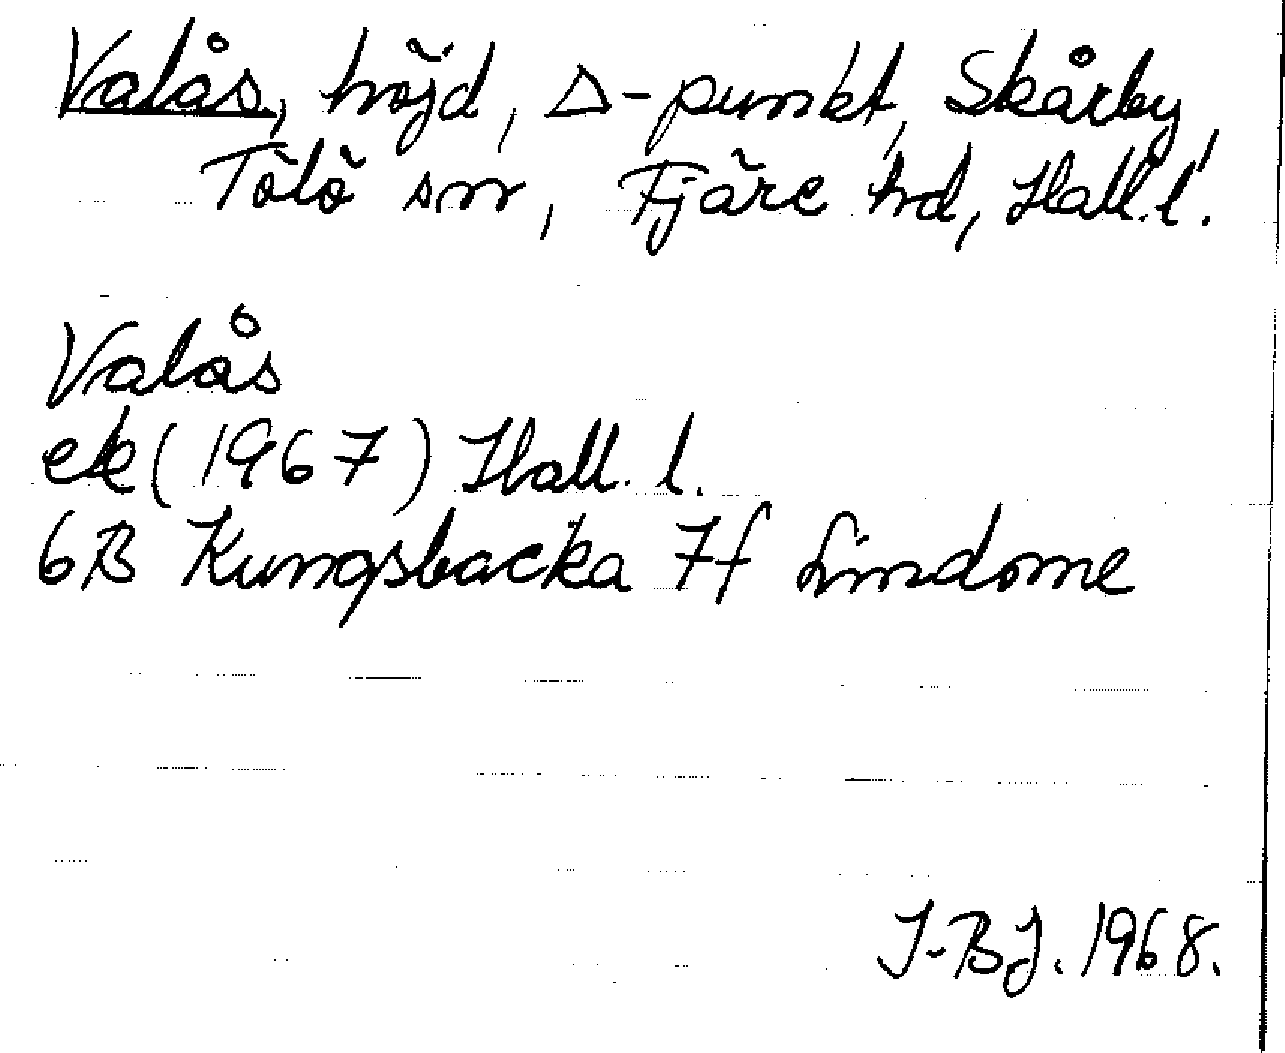 Valås, höjd, △-punkt, Skårby,
Tölö sn, Fjäre hd, Hall. l.
Valås
ek (1967) Hall. l.
6B Kungsbacka 7f Lindome
I-BJ. 1968.